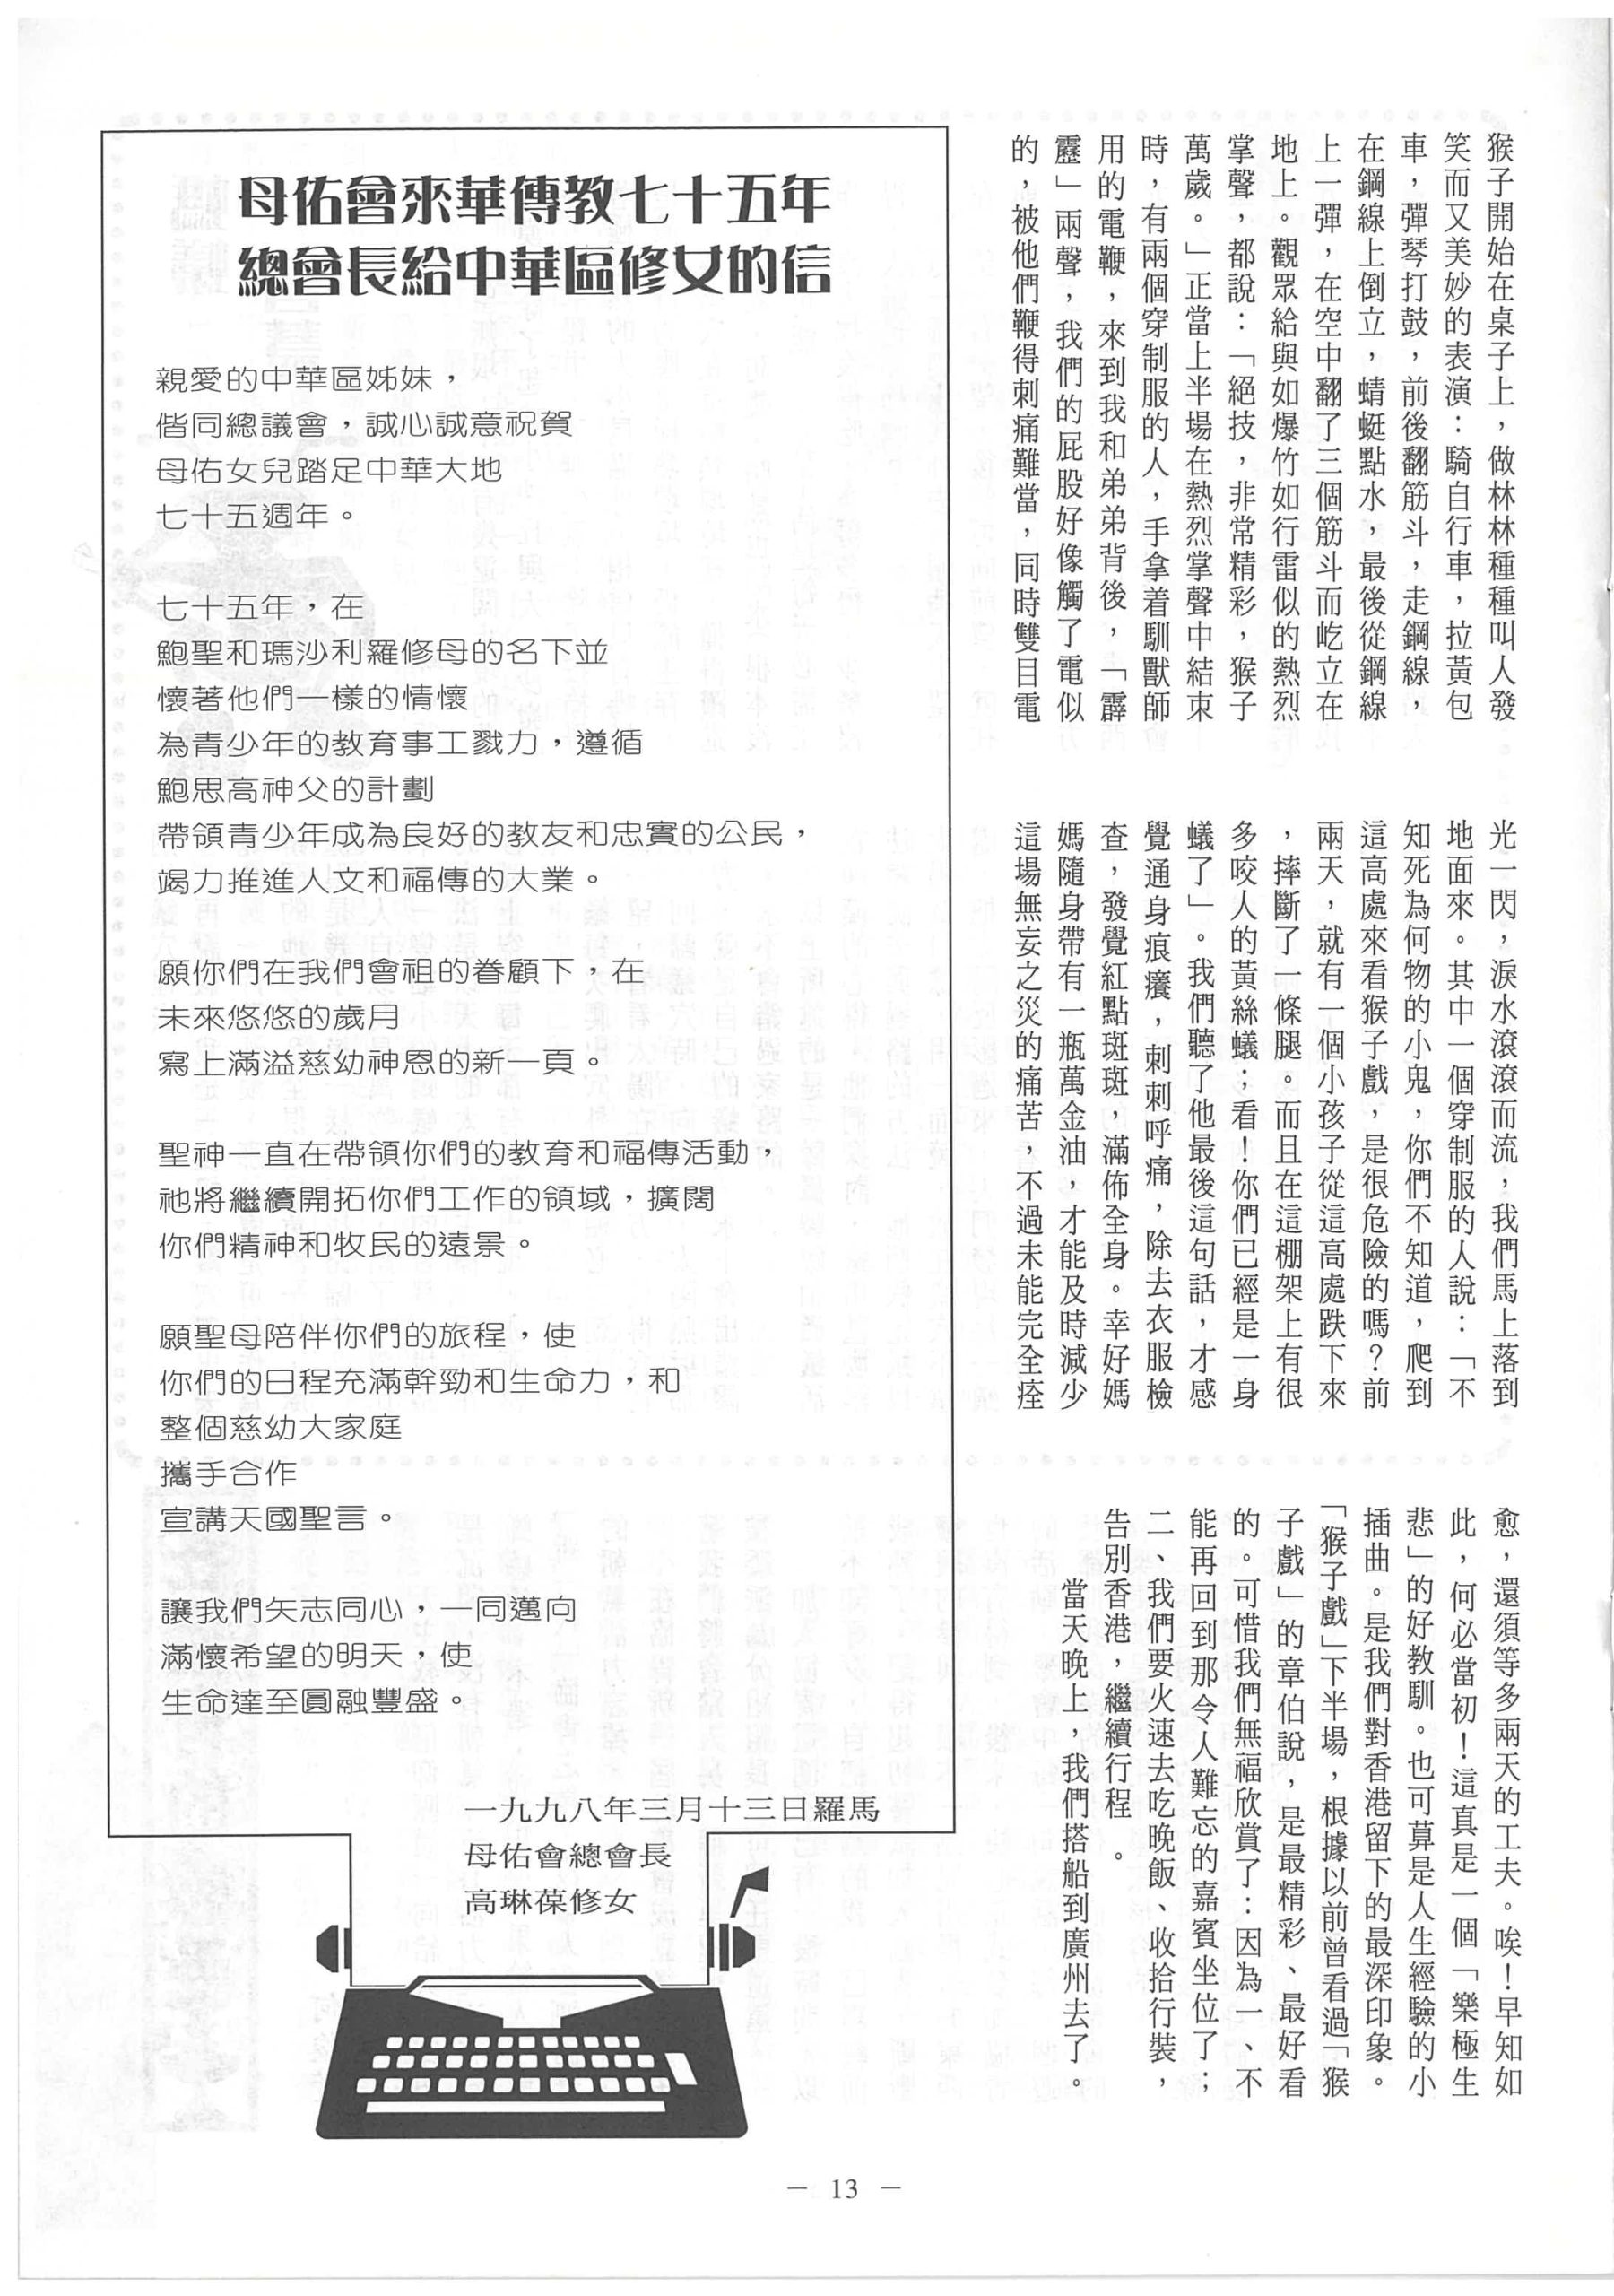 猴子開始在桌子上，做林林種種叫人發
笑而又美妙的表演：騎自行車，拉黃包
車，彈琴打鼓，前後翻筋斗，走鋼線，
在鋼線上倒立，蜻蜓點水，最後從鋼線
上一彈，在空中翻了三個筋斗而屹立在
地上。觀眾給與如爆竹如行雷似的熱烈
掌聲，都說：「絕技，非常精彩，猴子
萬歲。」正當上半場在熱烈掌聲中結束
時，有兩個穿制服的人，手拿着馴獸師
用的電鞭，來到我和弟弟背後，「霹
靂」兩聲，我們的屁股好像觸了電似
的，被他們鞭得刺痛難當，同時雙目電
光一閃，淚水滾滾而流，我們馬上落到
地面來。其中一個穿制服的人說：「不
知死為何物的小鬼，你們不知道，爬到
這高處來看猴子戲，是很危險的嗎？前
兩天，就有一個小孩子從這高處跌下來
，摔斷了一條腿。而且在這棚架上有很
多咬人的黃絲蟻；看！你們已經是一身
蟻了」。我們聽了他最後這句話，才感
覺通身痕癢，刺刺呼痛，除去衣服檢
查，發覺紅點斑斑，滿佈全身。幸好媽
媽隨身帶有一瓶萬金油，才能及時減少
這場無妄之災的痛苦，不過未能完全痊
愈，還須等多兩天的工夫。唉！早知如
此，何必當初！這真是一個「樂極生
悲」的好教馴。也可算是人生經驗的小
插曲。是我們對香港留下的最深印象。
「猴子戲」下半場，根據以前曾看過「猴
子戲」的章伯說，是最精彩、最好看
的。可惜我們無福欣賞了：因為一、不
能再回到那令人難忘的嘉賓坐位了；
二、我們要火速去吃晚飯、收拾行裝，
告別香港，繼續行程。
當天晚上，我們搭船到廣州去了。
母佑會來華傳教七十五年
總會長給中華區修女的信
親愛的中華區姊妹，
偕同總議會，誠心誠意祝賀
母佑女兒踏足中華大地
七十五週年。
七十五年，在
鮑聖和瑪沙利羅修母的名下並
懷著他們一樣的情懷
為青少年的教育事工戮力，遵循
鮑思高神父的計劃
帶領青少年成為良好的教友和忠實的公民，
竭力推進人文和福傳的大業。
願你們在我們會祖的眷顧下，在
未來悠悠的歲月
寫上滿溢慈幼神恩的新一頁。
聖神一直在帶領你們的教育和福傳活動，
祂將繼續開拓你們工作的領域，擴闊
你們精神和牧民的遠景。
願聖母陪伴你們的旅程，使
你們的日程充滿幹勁和生命力，和
整個慈幼大家庭
攜手合作
宣講天國聖言。
讓我們矢志同心，一同邁向
滿懷希望的明天，使
生命達至圓融豐盛。
一九九八年三月十三日羅馬
母佑會總會長
高琳葆修女
— 13 —